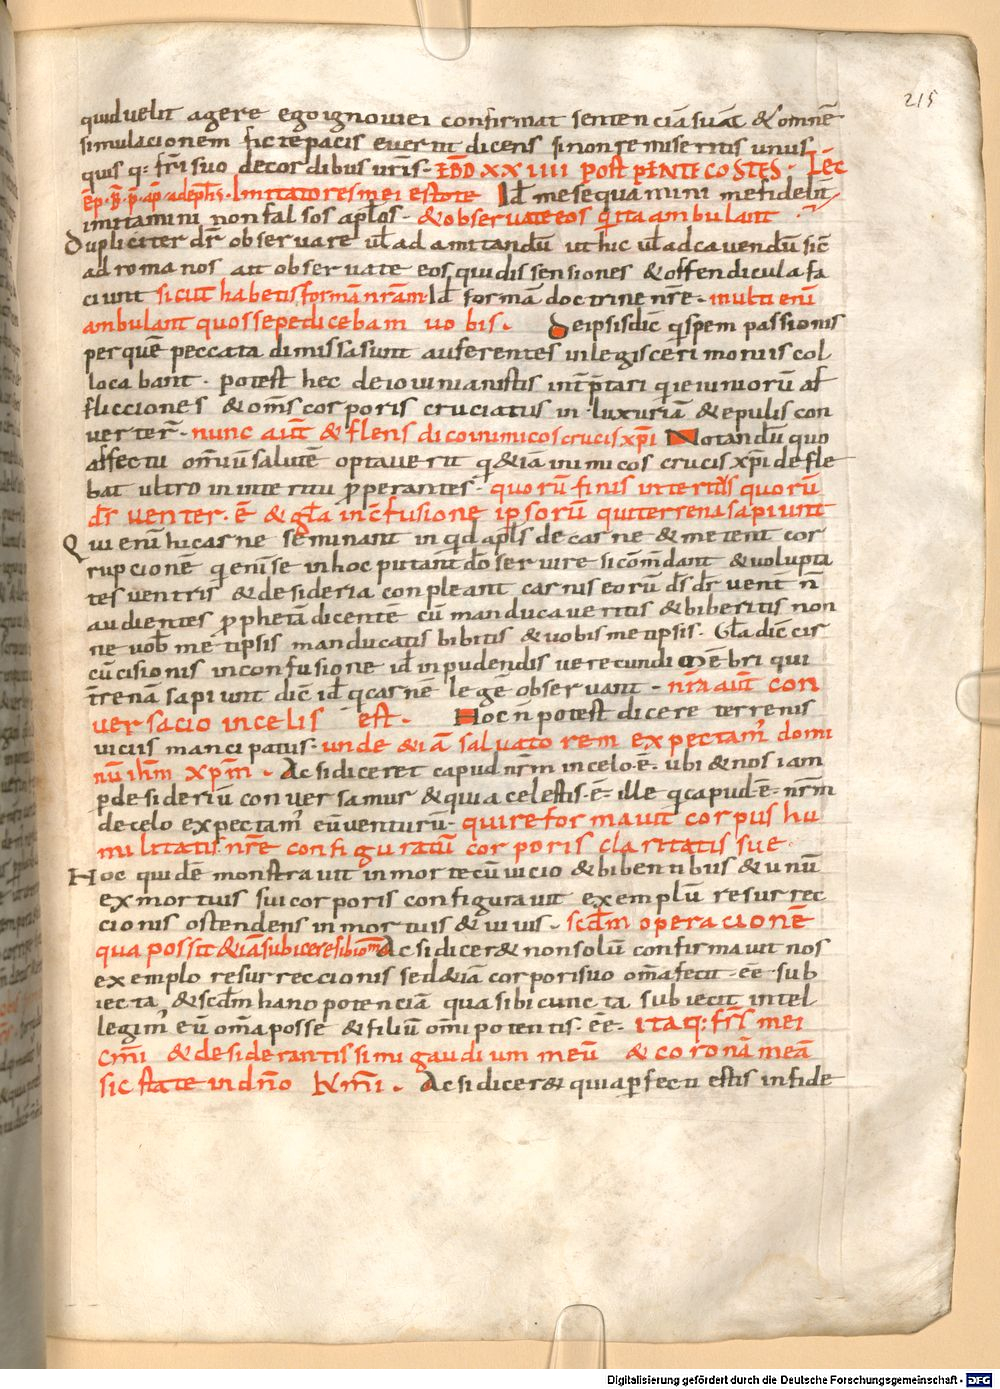 215
quid uelit agere ego ignouiei confirmat sentenciā suā & omnē
simulacionem fictę pacis euertit dicens si non remiseritis unus
quisq: fr̄i suo de cordibus ur̄is · EBD XX IIII POST PENTECOSTES · LEC
ēp· b̄· p̄· ap̄· ad eph̄s · Imitatores mei estote Id̄ me sequamini me fidelit̄
imitamini non falsos apl̄os · & obseruate eos q̄ ita ambulant
Dupliciter dr̄ obseruare ul̄ ad amitandū ut hic ul̄ ad cauendū sic̄
ad romanos ait obseruate eos qui dissensiones & offendicula fa
ciunt sicut habetis formā nr̄am Id̄ formā doctrine nr̄e · multi enī
ambulant quos sepe dicebam uobis · De ipsis dic̄ q̄ spem passionis
per quē peccata dimissa sunt auferentes in legis cerimoniis col
locabant · potest hec de iouinianistis int̄p̄tari q̄ ieiuniorū af
flicciones & om̄s corporis cruciatus in luxuriā & epulis con
uerter̄ · nunc aūt & flens dico inimicos crucis xp̄i Notandū quo
affectu om̄iū salutē optauerit q̄ & iā inimicos crucis xp̄i defle
bat ultro in interitu p̄perantes · quorū finis interitus quorū
dr̄ uenter · ē & gl̄a in c̄fusione ipsorū qui terrena sapiunt
Qui enī hic carne seminant in q̄d apl̄s de carne & metent cor
rupcionē q̄ enī se in hoc putant dō seruire si com̄dant & uolupta
tes uentris & desideria conpleant carnis eorū ds̄ dr̄ uent̄ n̄
audientes p̄phetā dicentē cū manducaueritis & biberitis non
ne uob̄ metipsis manducatis bibitis & uobismetipsis · Gl̄a dic̄ cir
cū cisionis in confusione id̄ in pudendis uerecundi mēbri qui
t̄rena sapiunt dic̄ id̄ q̄ carnē legē obseruant · nr̄a aūt con
uersacio in celis est · Hoc n̄ potest dicere terrenis
uiciis mancipatus · unde & iā saluatorem expectam̄ domi
nū ih̄m xp̄m · Ac si diceret capud nr̄m in celo · ē · ubi & nos iam
p̄ desideriū conuersamur & quia celestis · ē · ille q̄ capud · ē · nr̄m
de celo expectam̄ eū uenturū · qui reformauit corpus hu
militatis nr̄e configuratū corporis claritatis sue ·
Hoc quidē monstrauit in morte cū uicio & bibentibus & unū
ex mortuis sui corporis configurauit exemplū resurrec
cionis ostendens in mortuis & uiuis · scd̄m operacionē
qua possit & iā subicere sibi om̄a Ac si dicer& non solū confirmauit nos
exemplo resurreccionis sed & iā corpori suo om̄a fecit · ēe · sub
iecta, & scd̄m hanc potenciā qua sibi cuncta subiecit intel
legim̄ eū om̄a posse & filiū om̄ipotentis · ēe · itaq: fr̄s mei
cm̄i & desiderantissimi gaudium meū & corona meā
sic state in dn̄o km̄i · Ac si dicer& quia p̄fecti estis in fide
Digitalisierung gefördert durch die Deutsche Forschungsgemeinschaft · DFG